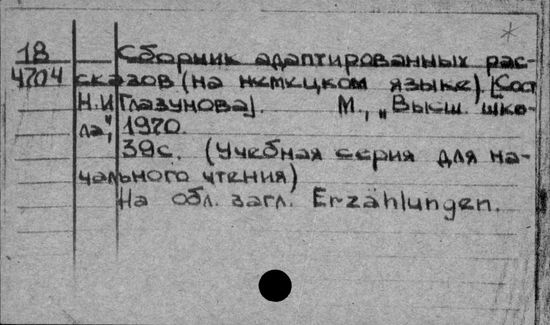 18 Сборник адаптированных рас-
4704 сказов (на немецком языке). [Сост.
Н.И. Глазунова]. М., „Высш. шко-
ла", 1970.
39с. (Учебная серия для на-
чального чтения)
На обл. загл. Erzählungen.